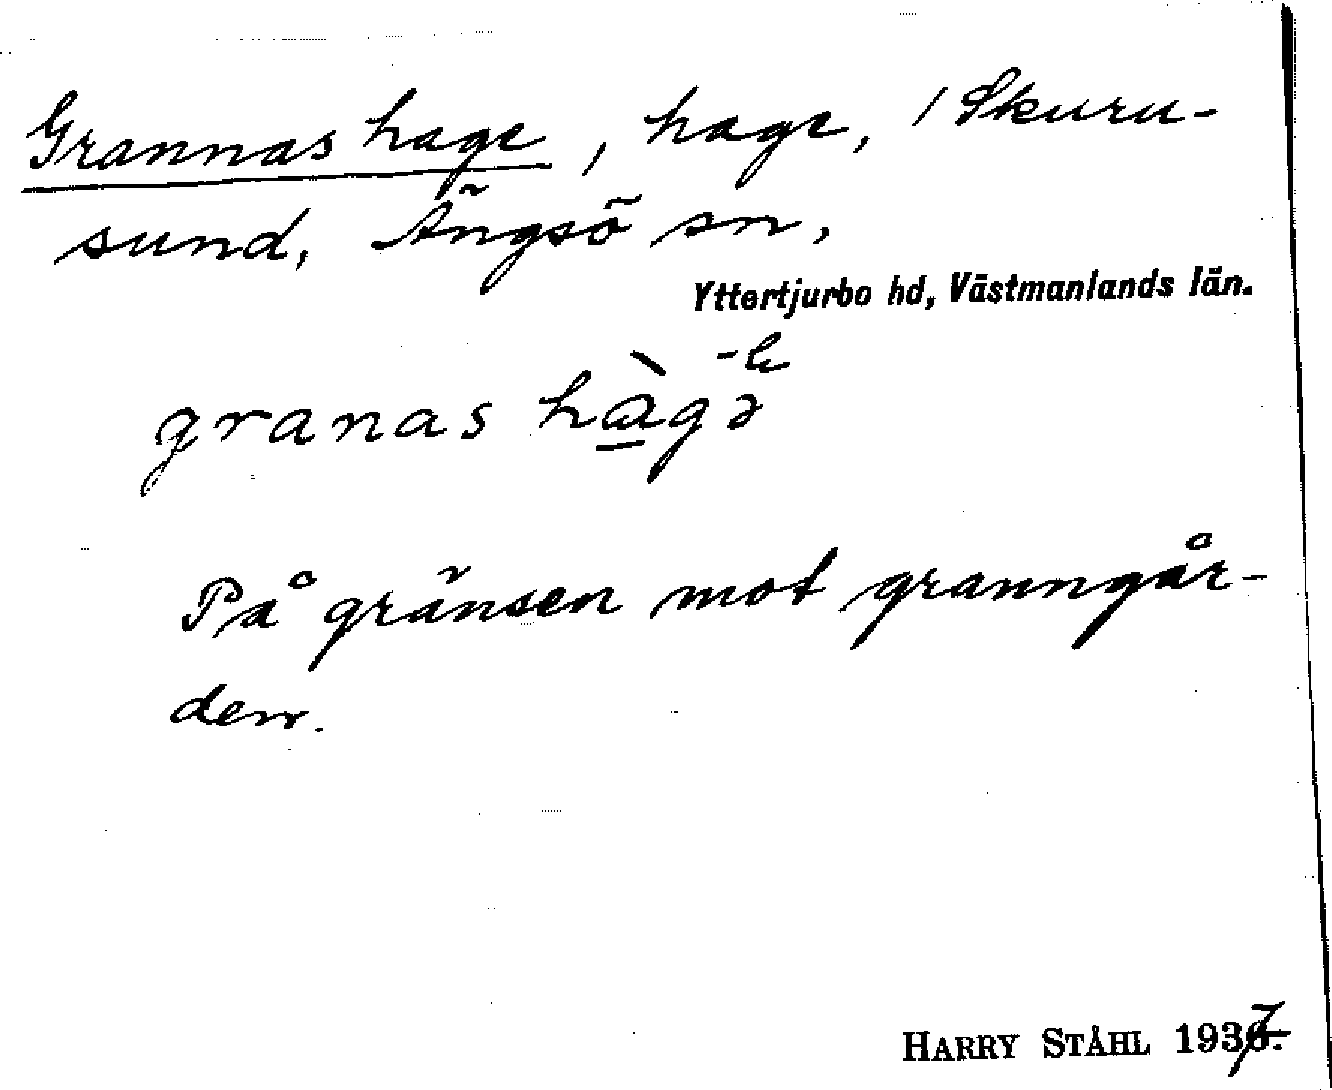 Grannas hage, hage, / Skuru-
sund, Ängsö sn,
Yttertjurbo hd, Västmanlands län.
-e
granas hàgə
På gränsen mot granngår-
den.
HARRY STÅHL 1937